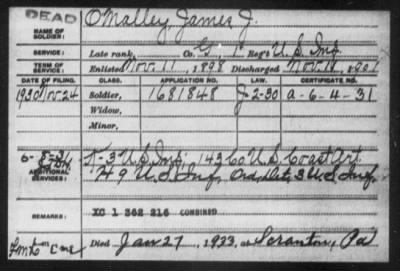 DEAD
NAME OF SOLDIER: O'Malley, James J.
SERVICE: Late rank, Co. G, 1" Reg't U.S. Inf.
TERM OF SERVICE: Enlisted Nov. 11, 1898 Discharged Nov. 11, 1901
DATE OF FILING. CLASS. APPLICATION NO. LAW. CERTIFICATE NO.
1930 Nov 24 Soldier, 1681848 J 2-30 a-6-4-31
Widow,
Minor,
ADDITIONAL SERVICES: K-3 U.S. Inf; 143 Co U.S. Coast Art
H 9 U.S. Inf, Ord. Det, 3 U.S. Inf.
REMARKS: XC 1 362 216 COMBINED
Died Jan 27, 1933, at Scranton, Pa